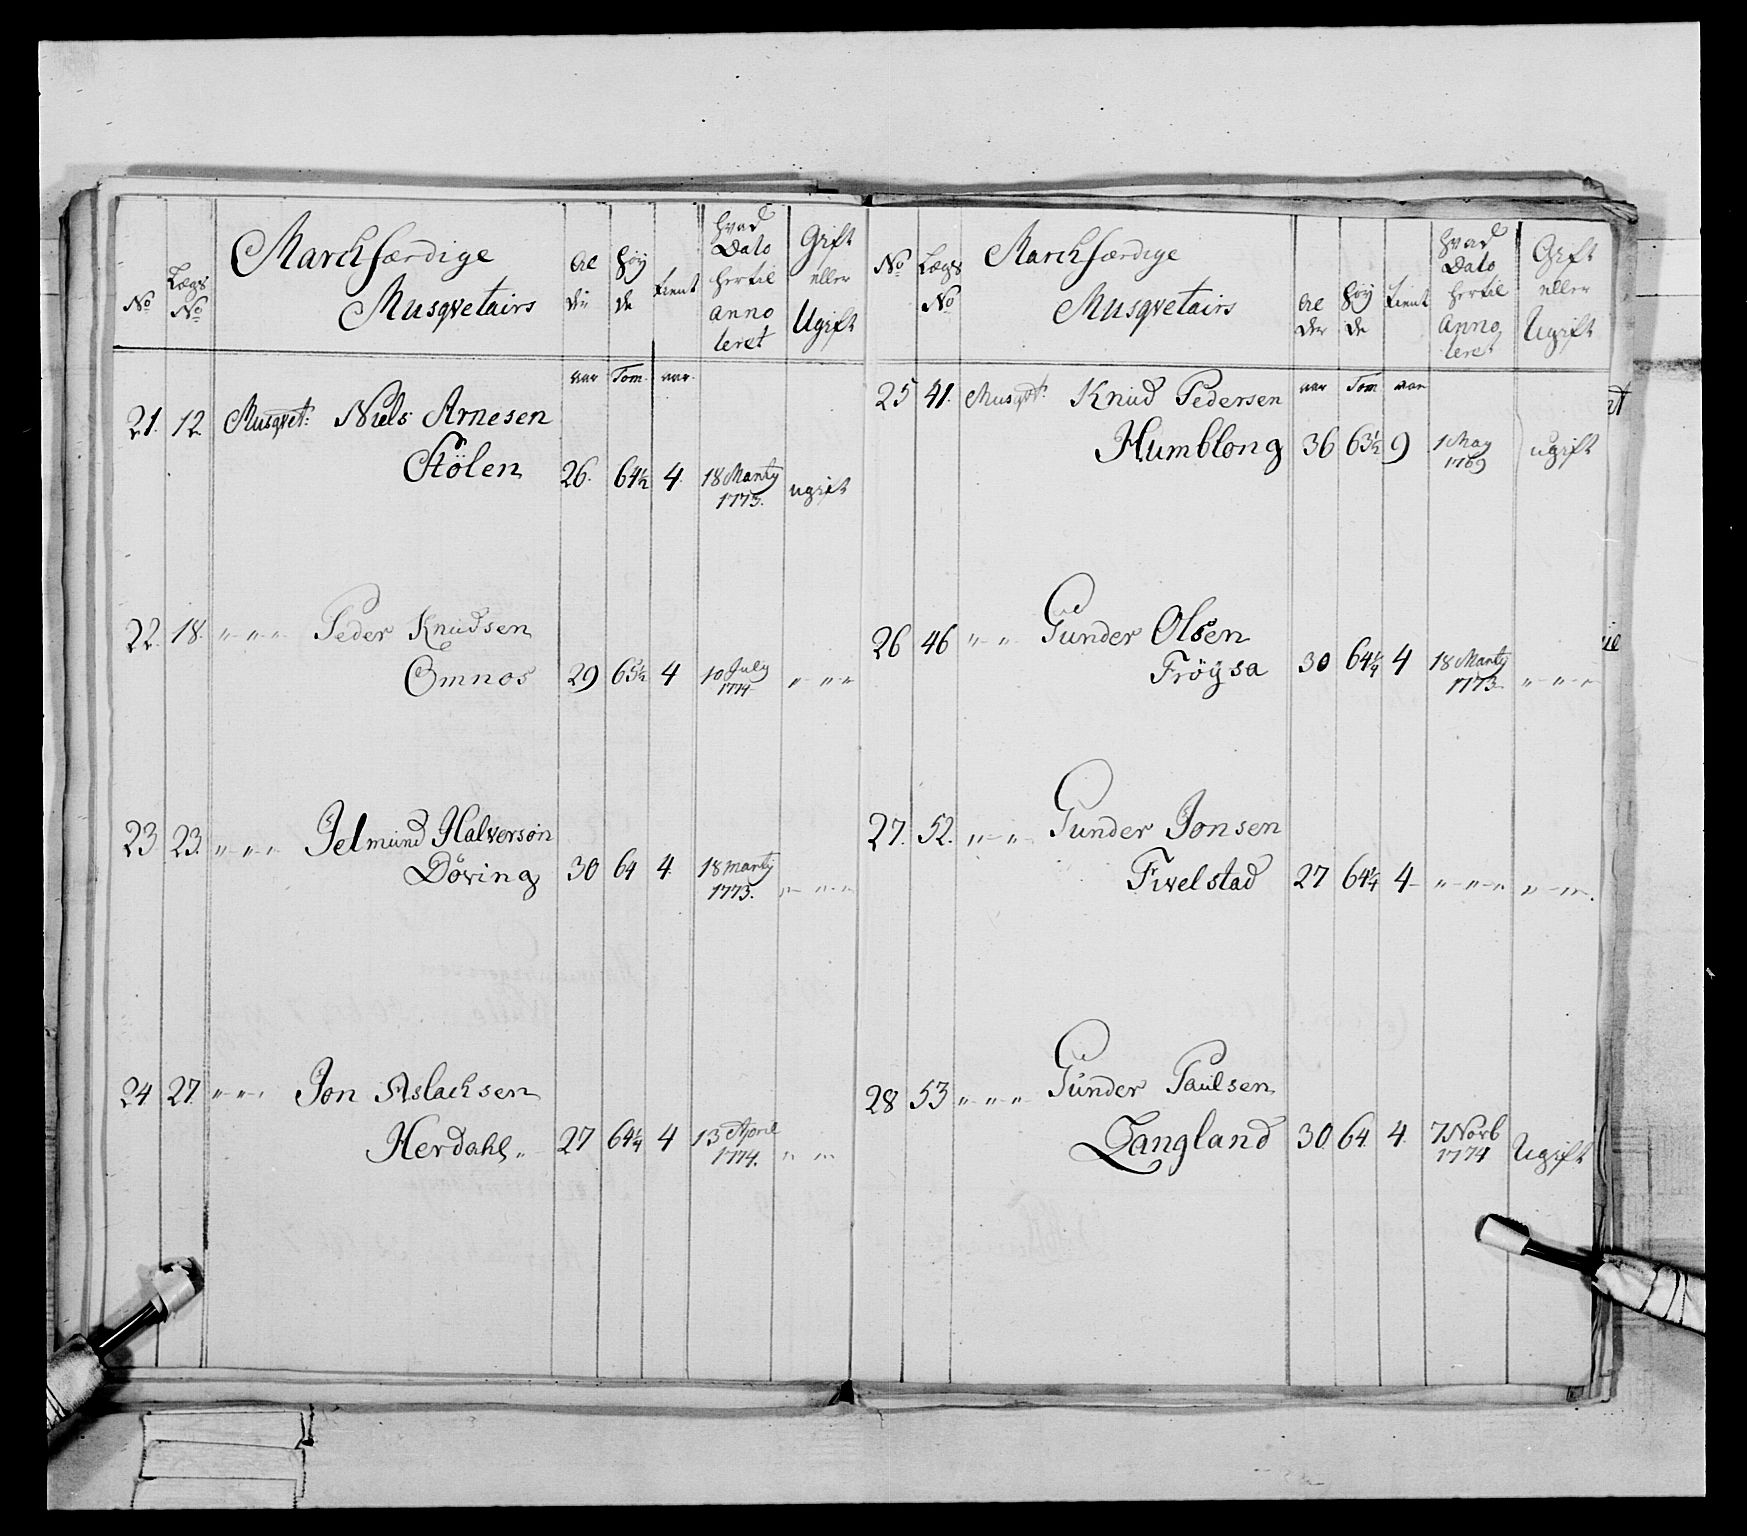 No Lægs No Marchfærdige Musqvetairs Al der Høy de tient hvad Dato hertil anno teret Gift eller Ugift
aar Tom. aar.
21. 12 Musqvet: Niels Arnesen
Stölen 26. 64½ 4. 18 Marty 1773. ugift
22. 18. " " " Peder Knudsen
Omnos 29 65½ 4 10 July 1774 " " "
23 23. " " " Jelmund Halversøn
Döving 30 64 4. 18 marty 1773. " " "
24 27. " " " Jon Aslachsen
Herdahl 27 64¼ 4 13 April 1774. " "
No Lægs No Marchfærdige Musqvetairs Al der Høy de tient hvad Dato hertil Anno teret Gift eller Ugift
aar Tom aar
25 41. Musqvt: Knud Pedersen
Humblong 36 63½ 9 1 May 1769 ugift
26 46 " " Gunder Olsen
Fröysa 30 64¼ 4 18 Marty 1773. " " "
27. 52. " " Gunder Jonsen
Fivelstad 27 64¼ 4 " " " " "
28 53 " " " Gunder Paulsen
Langland 30 64. 4. 7 Novb 1774 Ugift